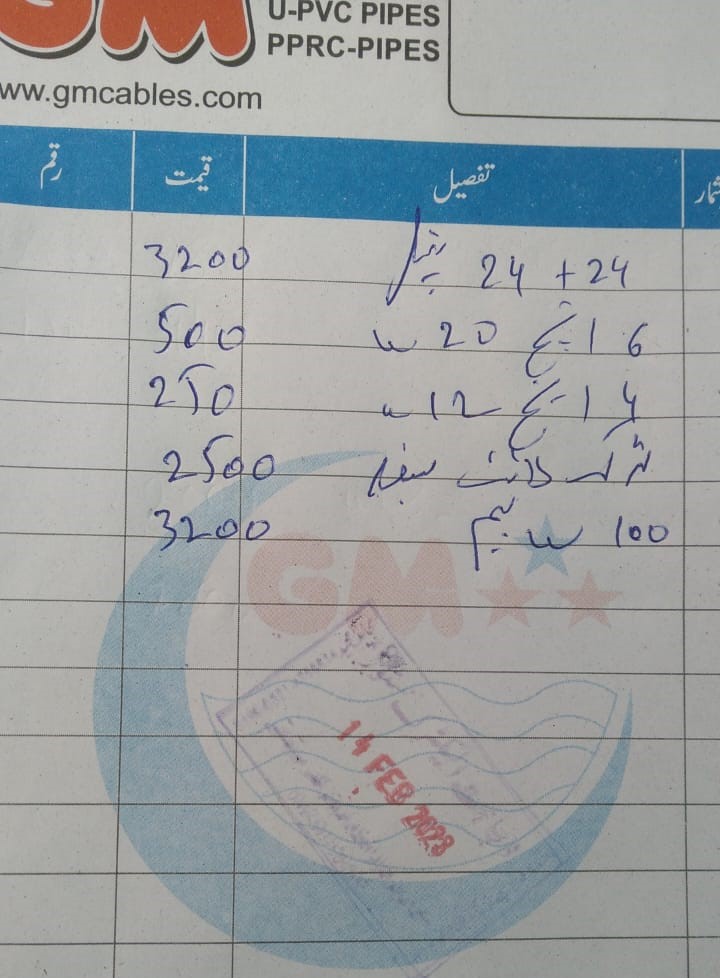 GM
U-PVC PIPES
PPRC-PIPES
ww.gmcables.com
شمار تفصیل قیمت رقم
24 + 24 3200
6 انچ 20 w 500
4 انچ 12 w 250
ٹریک لائٹ سفید 2500
100 w بیم 3200
GM
14 FEB 2023